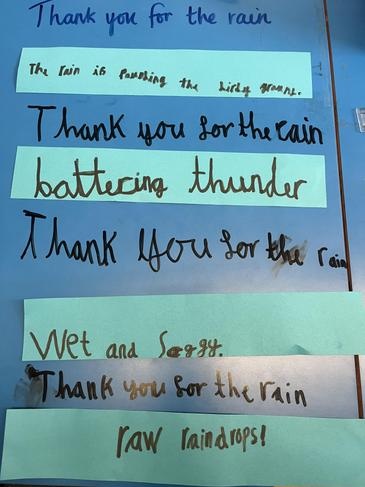 Thank you for the rain
The rain is the
Thank you for the rain
battering thunder
Thank you for the rain
Wet and Soggy.
Thank you for the rain
raw raindrops!